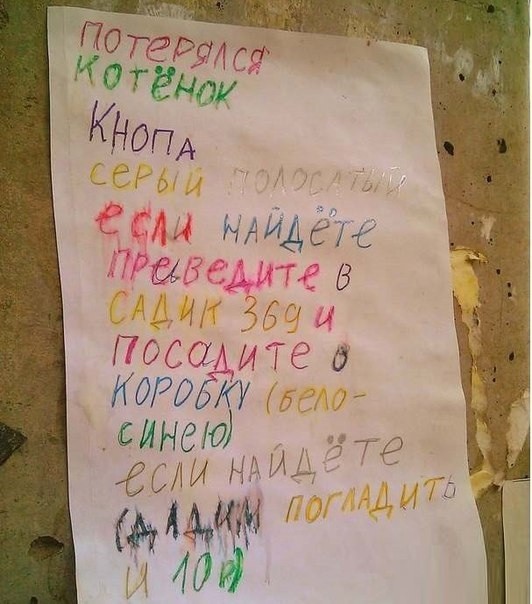 ПОТЕРЯЛСЯ
КОТЁНОК
КНОПА
СЕРЫЙ ПОЛОСАТЫЙ
если НАЙДЁТЕ
ПРЕВЕДИТЕ В
САДИК 369 и
ПОСАДИТЕ В
КОРОБКУ (бело-
синею)
если НАЙДЁТЕ
ДАДИМ ПОГЛАДИТЬ
и 10р